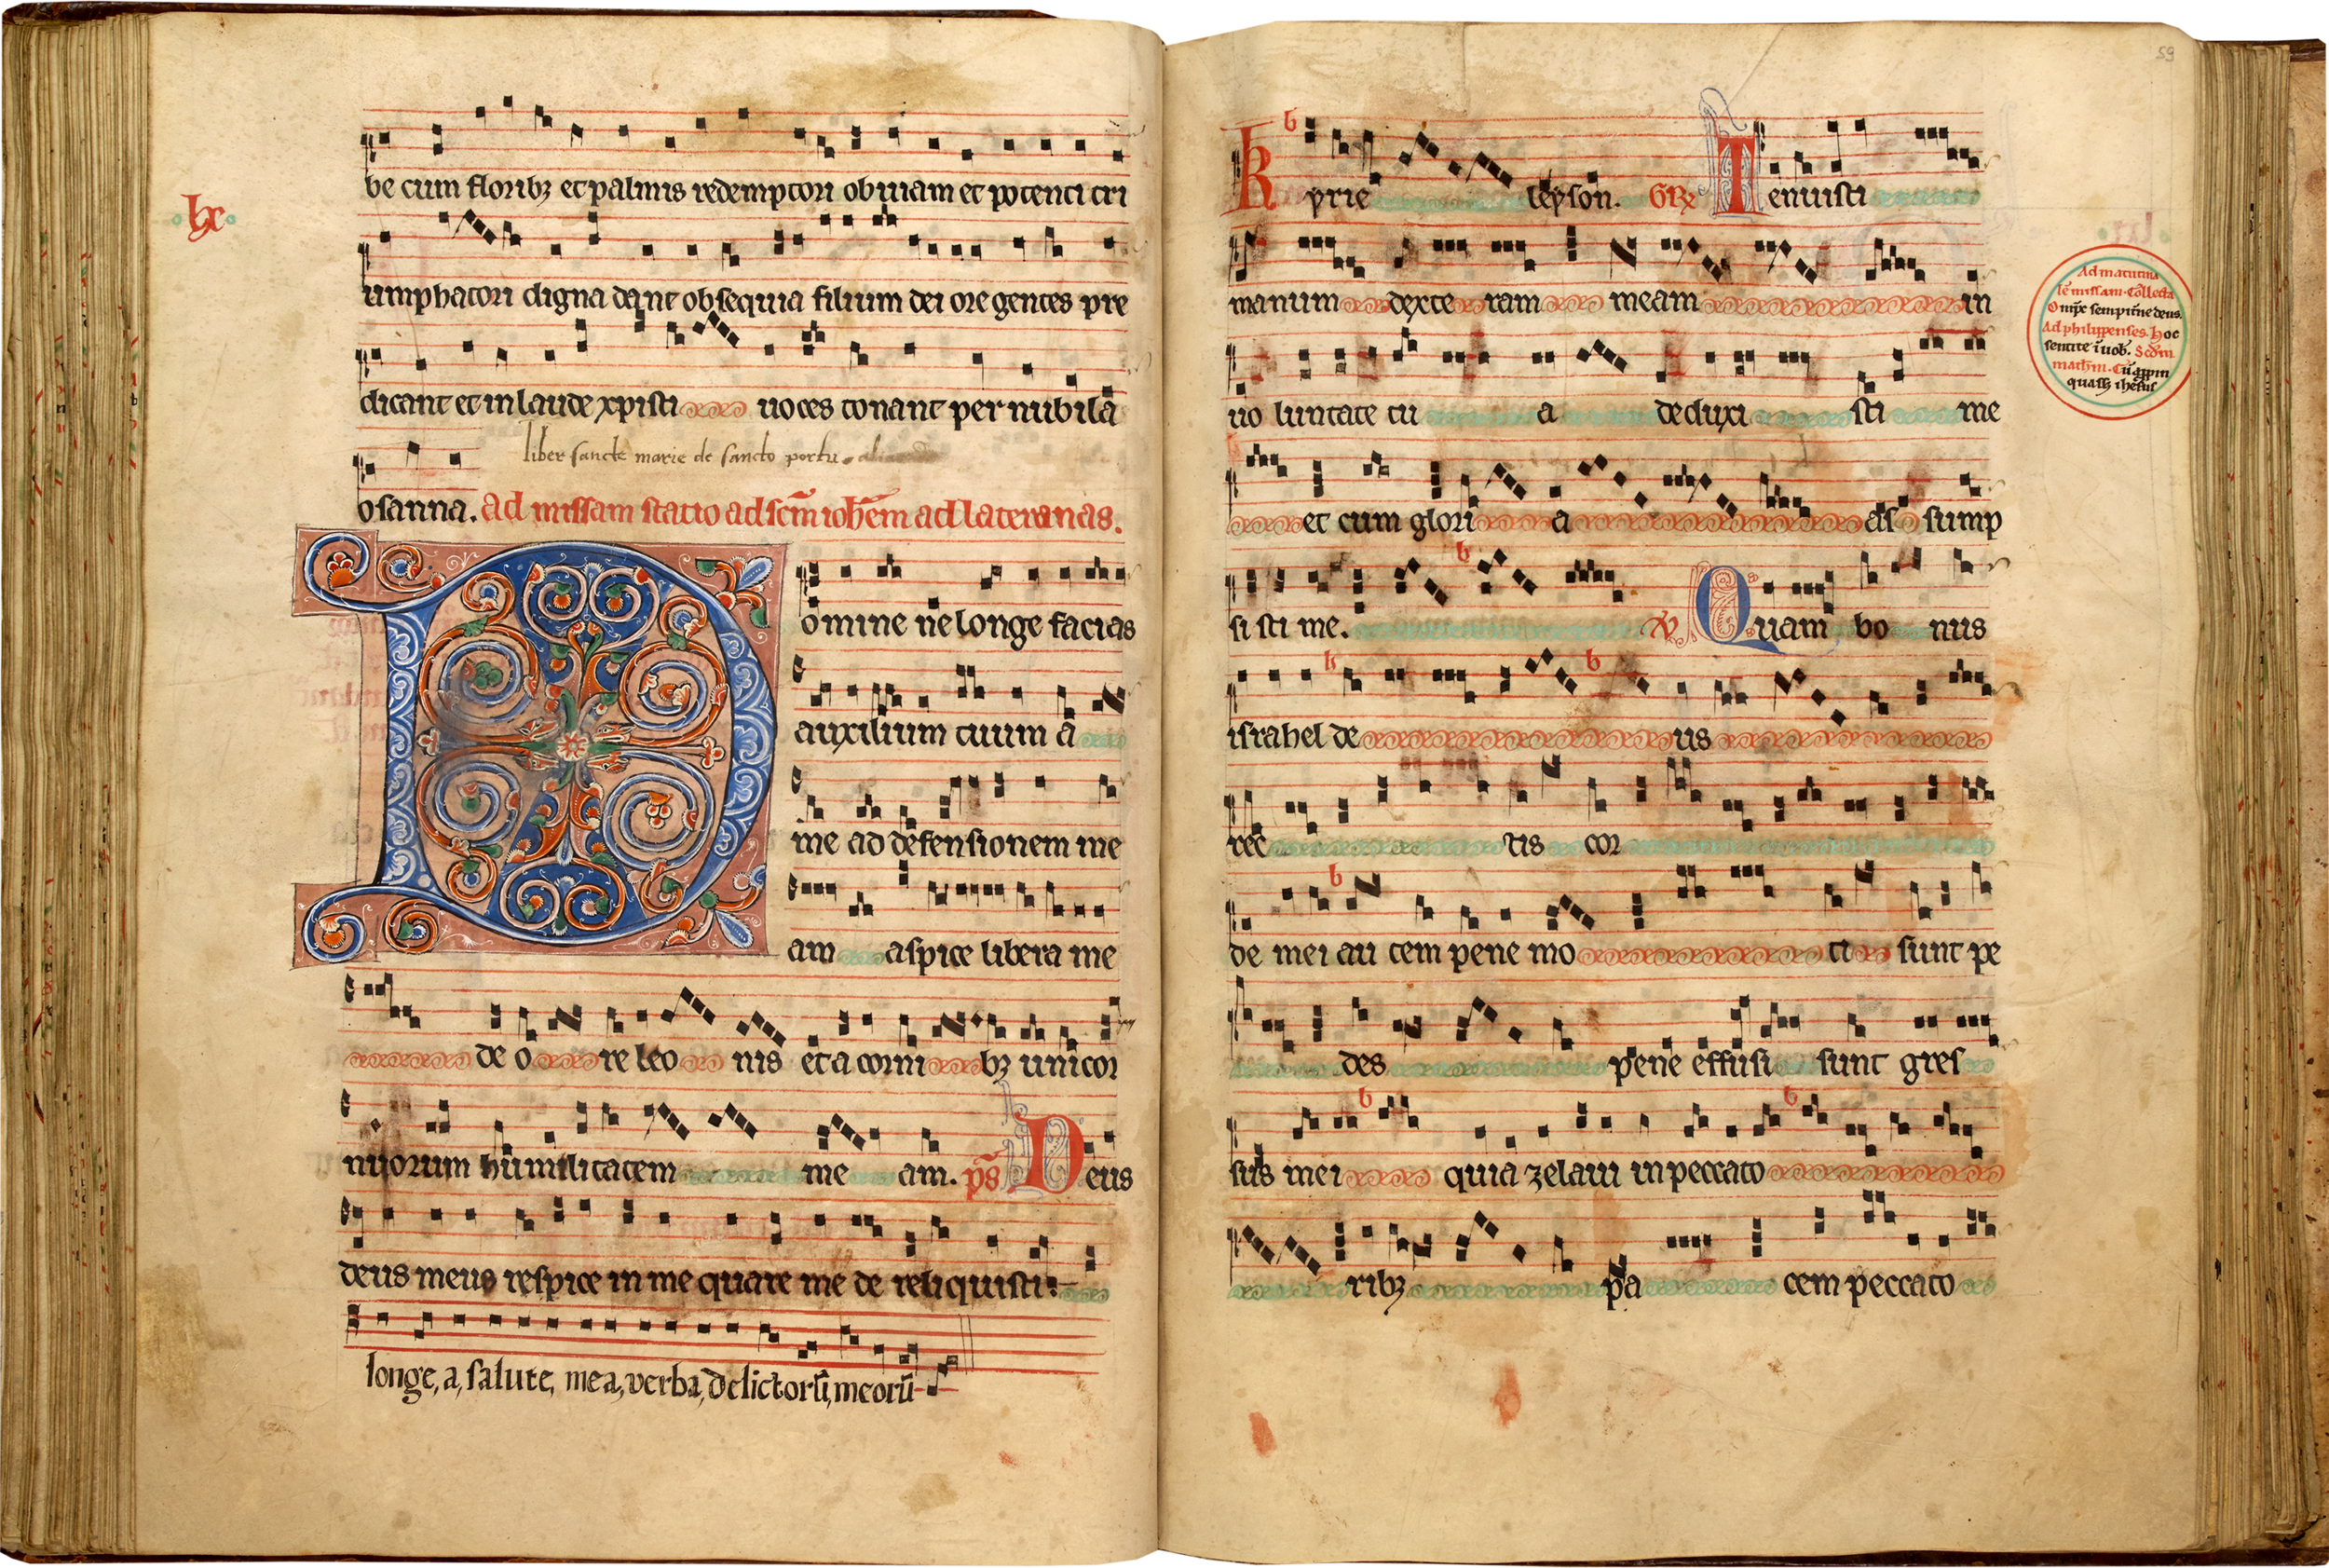 be cum floribȝ et palmis redemptori obuiam et potenti tri
·lx·
umphatori digna dant obsequia filium dei ore gentes pre
dicant et in laude xpisti uoces tonant per nubila
liber sancte marie de sancto portu
osanna. Ad missam statio ad scm̄ ioh̄em ad lateranas.
Domine ne longe facias
auxilium tuum a
me ad defensionem me
am aspice libera me
de o re leo nis et a corni bȝ unicor
nuorum humilitatem me am. ps̄ Deus
deus meus respice in me quare me de reliquisti:
longe, a, salute, mea, verba, delictorū, meorū
59
Kyrie leyson. GR̄ Tenuisti
manum dexte ram meam in
uo luntate tu a deduxi sti me
et cum glori a as sump
si sti me. V. Quam bo nus
israhel de us
rec tis cor
de mei au tem pene mo ti sunt pe
des pene effusi sunt gres
sus mei quia zelaui in peccato
ribȝ pa cem peccato
Ad matutina
lē missam. Collecta
Omp̄s sempit̄ne deus.
Ad philippenses. Hoc
sentite ī uob̄. Scd̄m
math̄m. Cū
ihesus